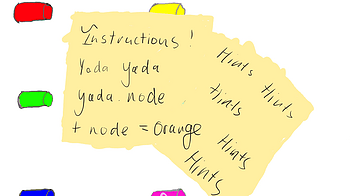 Instructions!
Yada yada
yada. node
+ node = Orange
Hints
Hints
Hints
Hints
Hints